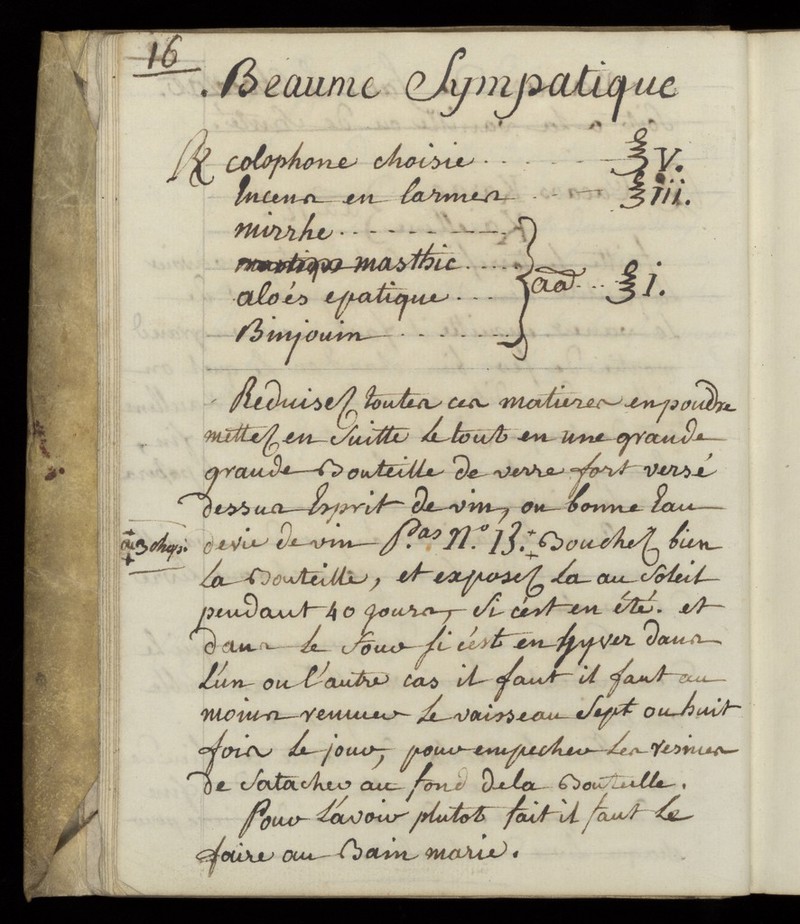 16
. Beaume Sympatique
℞ colophone choisie . . . . . . . ℥ V.
Encens en larmes . . . . . ℥ iii.
mirrhe . . . . . . . . . .
masthic . . . . .
aloés epatique . . . aâ . . . ℥ I.
Binjouin . . . . . . .
Reduisez toutes ces matieres en poudre
mettez en Suitte Le tout en une grande
grande Bouteille de verre fort versé
dessus Esprit de vin, ou bonne Eau
devie de vin P.as N.o 13. + Bouchez bien
+ ou 3 chopi: +
La Bouteille, et exposez La au Soleil
pendant 40 jours, Si c'est en été. et
dans Le Four si cést en hyver dans
L'un ou l'autre cas il faut il faut au
moins remuer Le vaisseau Sept ou huit
fois Le jour, pour empecher Les resines
de Satacher au fond dela Bouteille.
Pour L'avoir plutot fait il faut Le
faire au Bain marie.